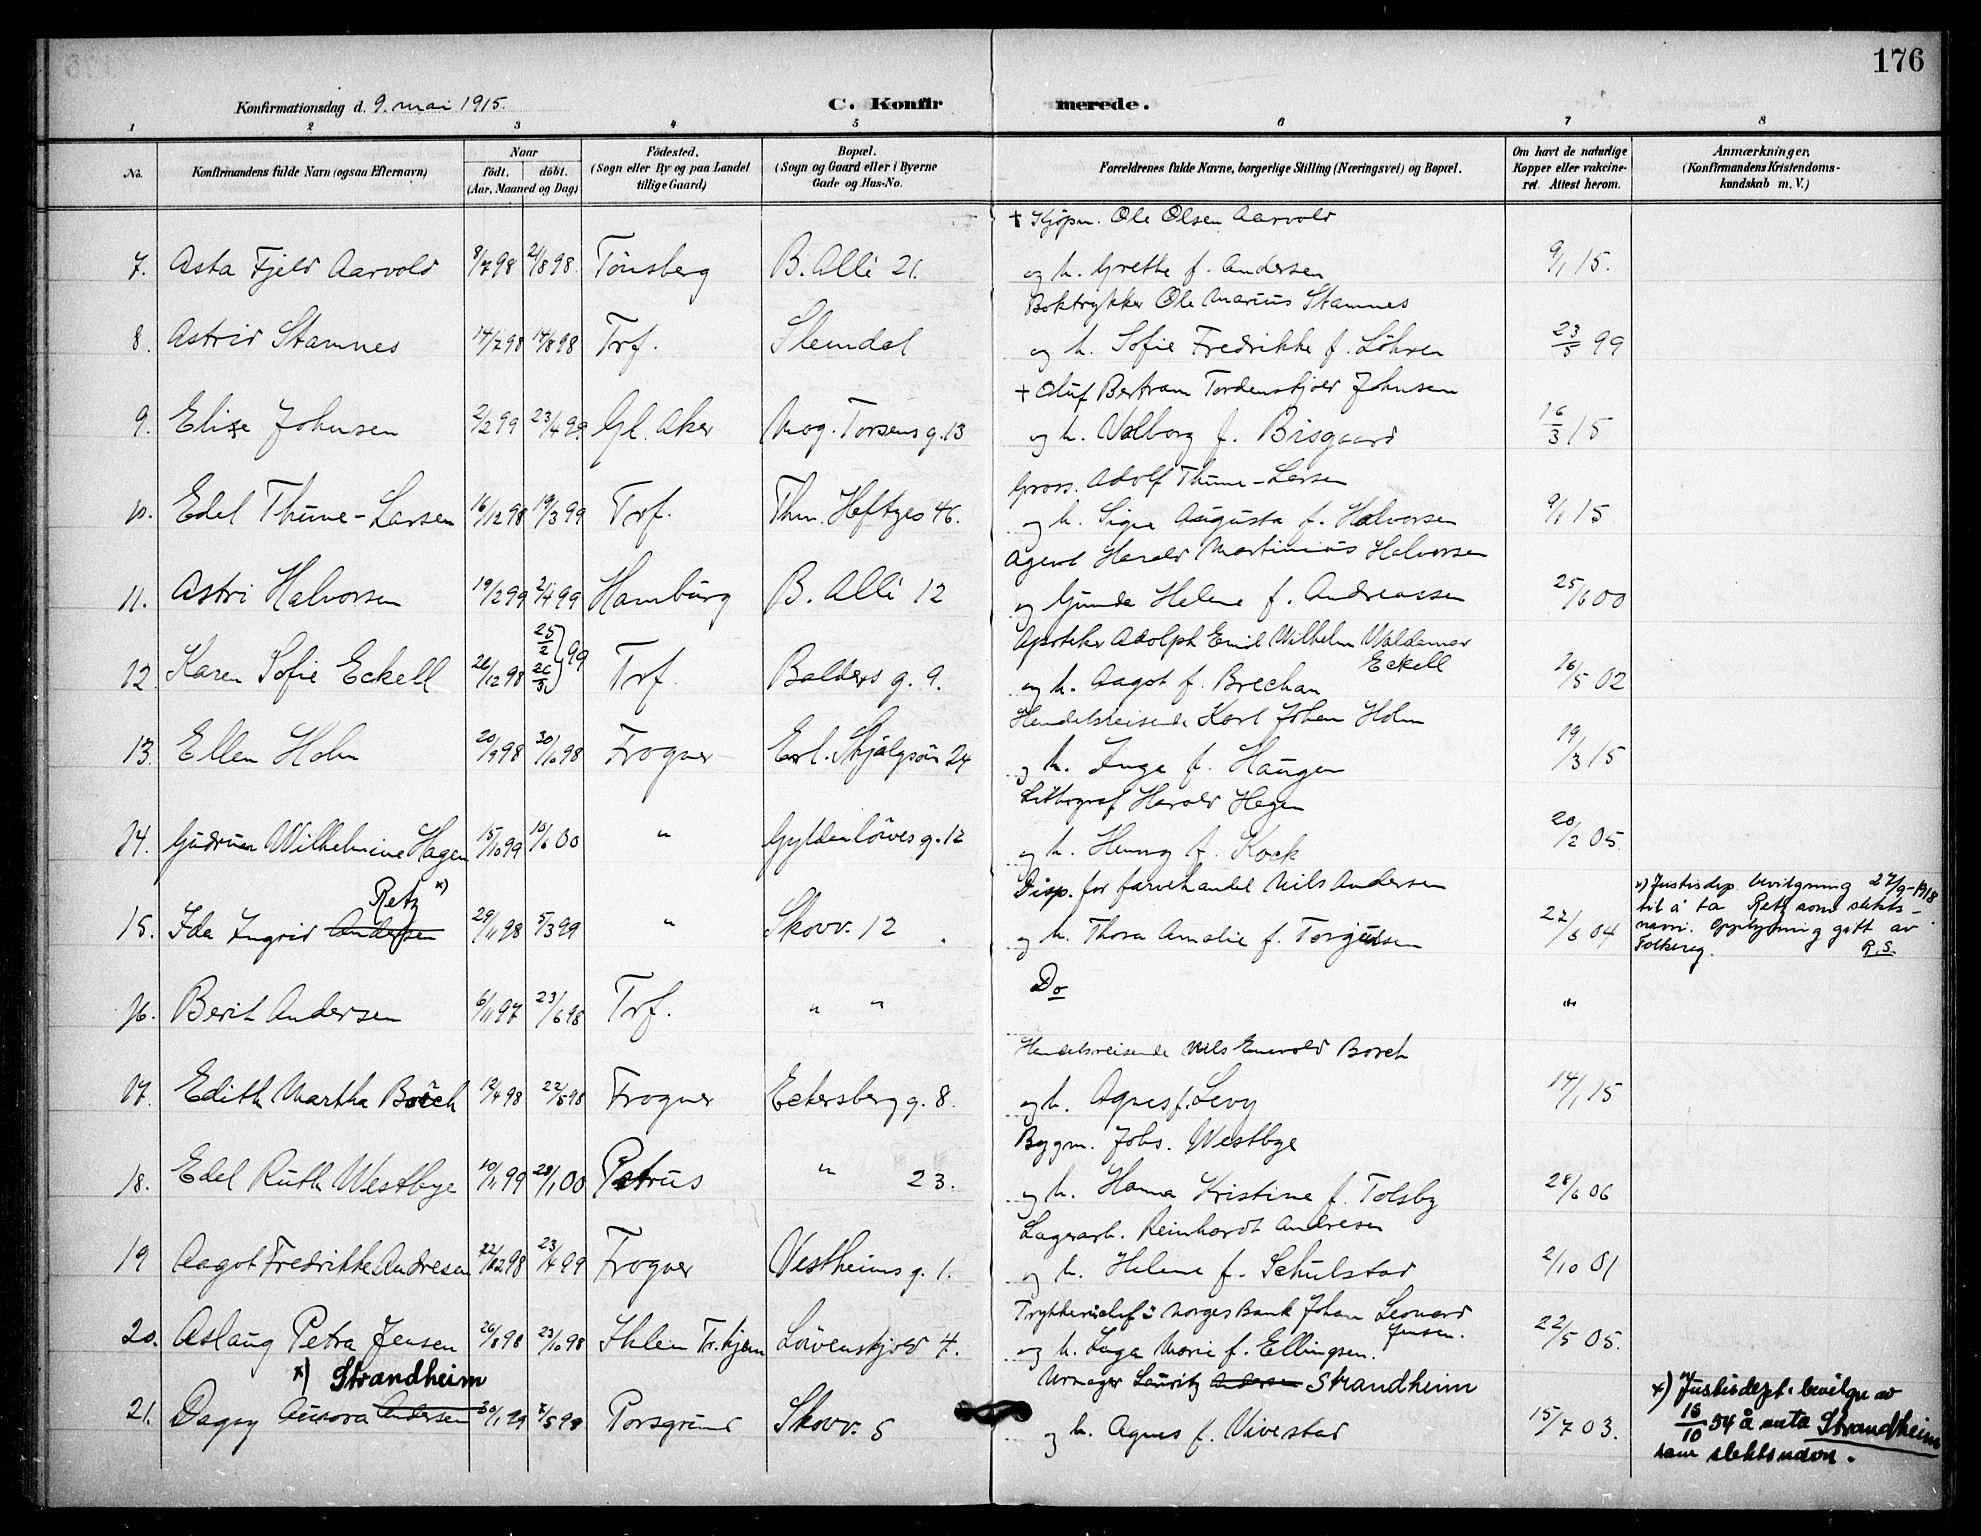 176
Konfirmationsdag d. 9. mai 1915.
C. Konfirmerede.
1 2 3 4 5 6 7 8
No. Konfirmandens fulde Navn (ogsaa Efternavn) Naar født. døbt. (Aar, Maaned og Dag) Fødested. (Sogn eller By og paa Landet tillige Gaard) Bopæl. (Sogn og Gaard eller i Byerne Gade og Hus-No. Forældrenes fulde Navne, borgerlige Stilling (Næringsvei) og Bopæl. Om havt de naturlige Kopper eller vakcineret. Attest herom. Anmærkninger, (Konfirmandens Kristendomskundskab m. V.)
† Kjøpm. Ole Olsen Aarvold
7. Asta Fjeld Aarvold 8/7 98 21/8 98. Tønsberg B. Allé 21. og h. Grethe f. Andersen 9/1 15.
Boktrykker Ole Marius Stamnes
8. Astrid Stamnes 14/7 98 14/8 98 Trf. Slemdal og h. Sofie Fredrikke f. Löhren 23/5 99
† Oluf Bertram Tordenskjold Johnsen
9. Elise Johnsen 2/2 99 23/4 99 Gl. Aker Mog. Torsens g. 13 og h. Valborg f. Bisgaard 16/3 15
Gross. Adolf Thune-Larsen
10. Edel Thune-Larsen 16/12 98 19/3 99 Trf. Thm. Heftyes 46. og h. Signe Augusta f. Halvorsen 9/1 15
Agent Harald Martinius Halvorsen
11. Astri Halvorsen 19/2 99 2/4 99 Hamburg B. Allé 12 og Gunda Helene f. Andreassen 25/6 00
Apoteker Adolph Emil Wilhelm Waldemar Eckell
12. Karen Sofie Eckell 26/12 98 25/2 26/3 } 99 Trf. Balders g. 9. og h. Aagot f. Brechan 16/5 02
Handelsreisende Karl Johan Holm
13. Ellen Holm 20/9 98 30/10 98 Frogner Erl. Skjalgsøn 24 og h. Inga f. Haugen 19/3 15
Litograf Harald Hagen
14. Gudrun Wilhelmine Hagen 15/10 99 10/6 00 " Gyldenløves g. 12 og h. Henny f. Kock 20/2 05.
Retz x)
Disp. for farvehandel Nils Andersen
15. Ida Ingrid Andersen 29/11 98 5/3 99 " Skovv. 12. og h. Thora Amalie f. Torgussen 22/6 04
x) Justisdep. bevilgning 27/9-1918
til å ta Retz som slekts-
navn. Opplysning gitt av
Folkereg. R.S.
16. Berit Andersen 6/11 97 23/6 98 Trf. " " Do "
Handelsreisende Nils Enevold Borch
17. Edith Martha Borch 12/4 98 22/5 98 Frogner Eckersberg g. 8. og h. Agnes f. Levy 14/1 15
Bygm. Johs. Westbye
18. Edel Ruth Westbye 10/11 99 28/1 00 Petrus " 23. og h. Hanna Kristine f. Tolsby 28/6 06
Lagerarb. Reinhardt Andresen
19 Aagot Fredrikke Andresen 22/12 98 23/4 99 Frogner Vestheims g. 1. og h. Helene f. Schulstad 2/10 01
Trykkerichef i Norges Bank Johan Leonard Jensen.
20. Aslaug Petra Jensen 26/8 98 23/10 98 Ihlen Tr.hjem Løvenskjold 4. og h. Inga Marie f. Ellingsen. 22/5 05.
x) Strandheim
Urmager Lauritz Andersen Strandheim
21. Dagny Aurora Andersen 30/1 99 7/5 99 Porsgrund Skovv. 5 og h. Agnes f. Vivestad 15/7 03.
x) Justisdept. bevilgn av
18/10 54 å anta Strandheim
som slektsnavn.